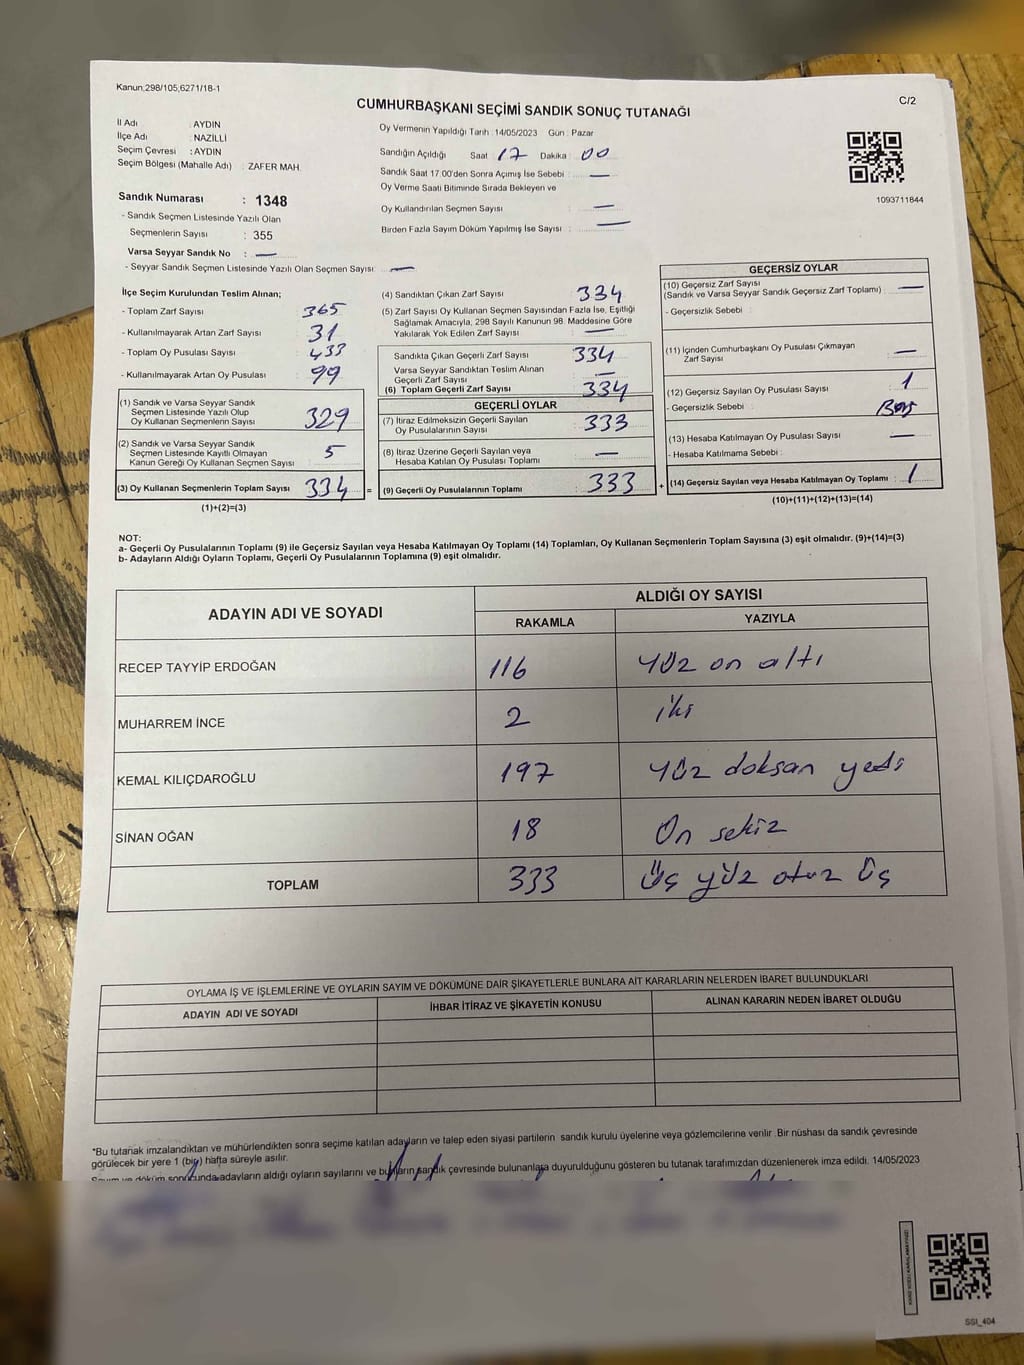 Kanun,298/105,6271/18-1
C/2
CUMHURBAŞKANI SEÇİMİ SANDIK SONUÇ TUTANAĞI
İl Adı : AYDIN
İlçe Adı : NAZİLLİ
Seçim Çevresi : AYDIN
Seçim Bölgesi (Mahalle Adı) : ZAFER MAH.
Sandık Numarası : 1348
- Sandık Seçmen Listesinde Yazılı Olan
Seçmenlerin Sayısı : 355
Varsa Seyyar Sandık No : —
- Seyyar Sandık Seçmen Listesinde Yazılı Olan Seçmen Sayısı: —
Oy Vermenin Yapıldığı Tarih : 14/05/2023 Gün : Pazar
Sandığın Açıldığı Saat 17 Dakika 00
Sandık Saat 17.00'den Sonra Açımış İse Sebebi : —
Oy Verme Saati Bitiminde Sırada Bekleyen ve
Oy Kullandırılan Seçmen Sayısı : —
Birden Fazla Sayım Döküm Yapılmış İse Sayısı : —
1093711844
İlçe Seçim Kurulundan Teslim Alınan;
- Toplam Zarf Sayısı : 365
- Kullanılmayarak Artan Zarf Sayısı : 31
- Toplam Oy Pusulası Sayısı : 433
- Kullanılmayarak Artan Oy Pusulası : 99
(1) Sandık ve Varsa Seyyar Sandık
Seçmen Listesinde Yazılı Olup
Oy Kullanan Seçmenlerin Sayısı : 329
(2) Sandık ve Varsa Seyyar Sandık
Seçmen Listesinde Kayıtlı Olmayan
Kanun Gereği Oy Kullanan Seçmen Sayısı : 5
(3) Oy Kullanan Seçmenlerin Toplam Sayısı : 334 =
(1)+(2)=(3)
(4) Sandıktan Çıkan Zarf Sayısı : 334
(5) Zarf Sayısı Oy Kullanan Seçmen Sayısından Fazla İse, Eşitliği
Sağlamak Amacıyla, 298 Sayılı Kanunun 98. Maddesine Göre
Yakılarak Yok Edilen Zarf Sayısı : —
Sandıkta Çıkan Geçerli Zarf Sayısı : 334
Varsa Seyyar Sandıktan Teslim Alınan
Geçerli Zarf Sayısı : —
(6) Toplam Geçerli Zarf Sayısı : 334
GEÇERLİ OYLAR
(7) İtiraz Edilmeksizin Geçerli Sayılan
Oy Pusulalarının Sayısı : 333
(8) İtiraz Üzerine Geçerli Sayılan veya
Hesaba Katılan Oy Pusulası Toplamı : —
(9) Geçerli Oy Pusulalarının Toplamı : 333 +
GEÇERSİZ OYLAR
(10) Geçersiz Zarf Sayısı
(Sandık ve Varsa Seyyar Sandık Geçersiz Zarf Toplamı) : —
- Geçersizlik Sebebi :
(11) İçinden Cumhurbaşkanı Oy Pusulası Çıkmayan
Zarf Sayısı : —
(12) Geçersiz Sayılan Oy Pusulası Sayısı : 1
- Geçersizlik Sebebi : Boş
(13) Hesaba Katılmayan Oy Pusulası Sayısı : —
- Hesaba Katılmama Sebebi :
(14) Geçersiz Sayılan veya Hesaba Katılmayan Oy Toplamı : 1
(10)+(11)+(12)+(13)=(14)
NOT:
a- Geçerli Oy Pusulalarının Toplamı (9) ile Geçersiz Sayılan veya Hesaba Katılmayan Oy Toplamı (14) Toplamları, Oy Kullanan Seçmenlerin Toplam Sayısına (3) eşit olmalıdır. (9)+(14)=(3)
b- Adayların Aldığı Oyların Toplamı, Geçerli Oy Pusulalarının Toplamına (9) eşit olmalıdır.
ADAYIN ADI VE SOYADI ALDIĞI OY SAYISI
RAKAMLA YAZIYLA
RECEP TAYYİP ERDOĞAN 116 yüz on altı
MUHARREM İNCE 2 iki
KEMAL KILIÇDAROĞLU 197 yüz doksan yedi
SİNAN OĞAN 18 On sekiz
TOPLAM 333 üç yüz otuz üç
OYLAMA İŞ VE İŞLEMLERİNE VE OYLARIN SAYIM VE DÖKÜMÜNE DAİR ŞİKAYETLERLE BUNLARA AİT KARARLARIN NELERDEN İBARET BULUNDUKLARI
ADAYIN ADI VE SOYADI İHBAR İTİRAZ VE ŞİKAYETİN KONUSU ALINAN KARARIN NEDEN İBARET OLDUĞU
*Bu tutanak imzalandıktan ve mühürlendikten sonra seçime katılan adayların ve talep eden siyasi partilerin sandık kurulu üyelerine veya gözlemcilerine verilir .Bir nüshası da sandık çevresinde
görülecek bir yere 1 (bir) hafta süreyle asılır.
Sayım ve döküm sonucunda adayların aldığı oyların sayılarını ve bunların sandık çevresinde bulunanlara duyurulduğunu gösteren bu tutanak tarafımızdan düzenlenerek imza edildi. 14/05/2023
SSI_404